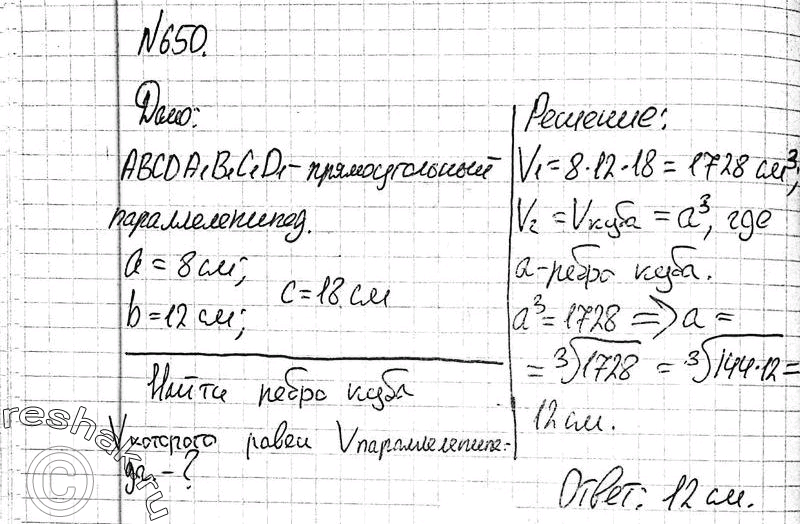 N650.
Дано:
ABCDA₁B₁C₁D₁ - прямоугольный
параллелепипед.
a = 8 см;
b = 12 см;
c = 18 см
Найти ребро куба
V которого равен V параллелепипе-
да - ?
Решение:
V₁ = 8·12·18 = 1728 см³;
V₂ = Vкуба = a³, где
a - ребро куба.
a³ = 1728 => a =
= ³√1728 = ³√144·12 =
12 см.
Ответ: 12 см.
reshak.ru
©